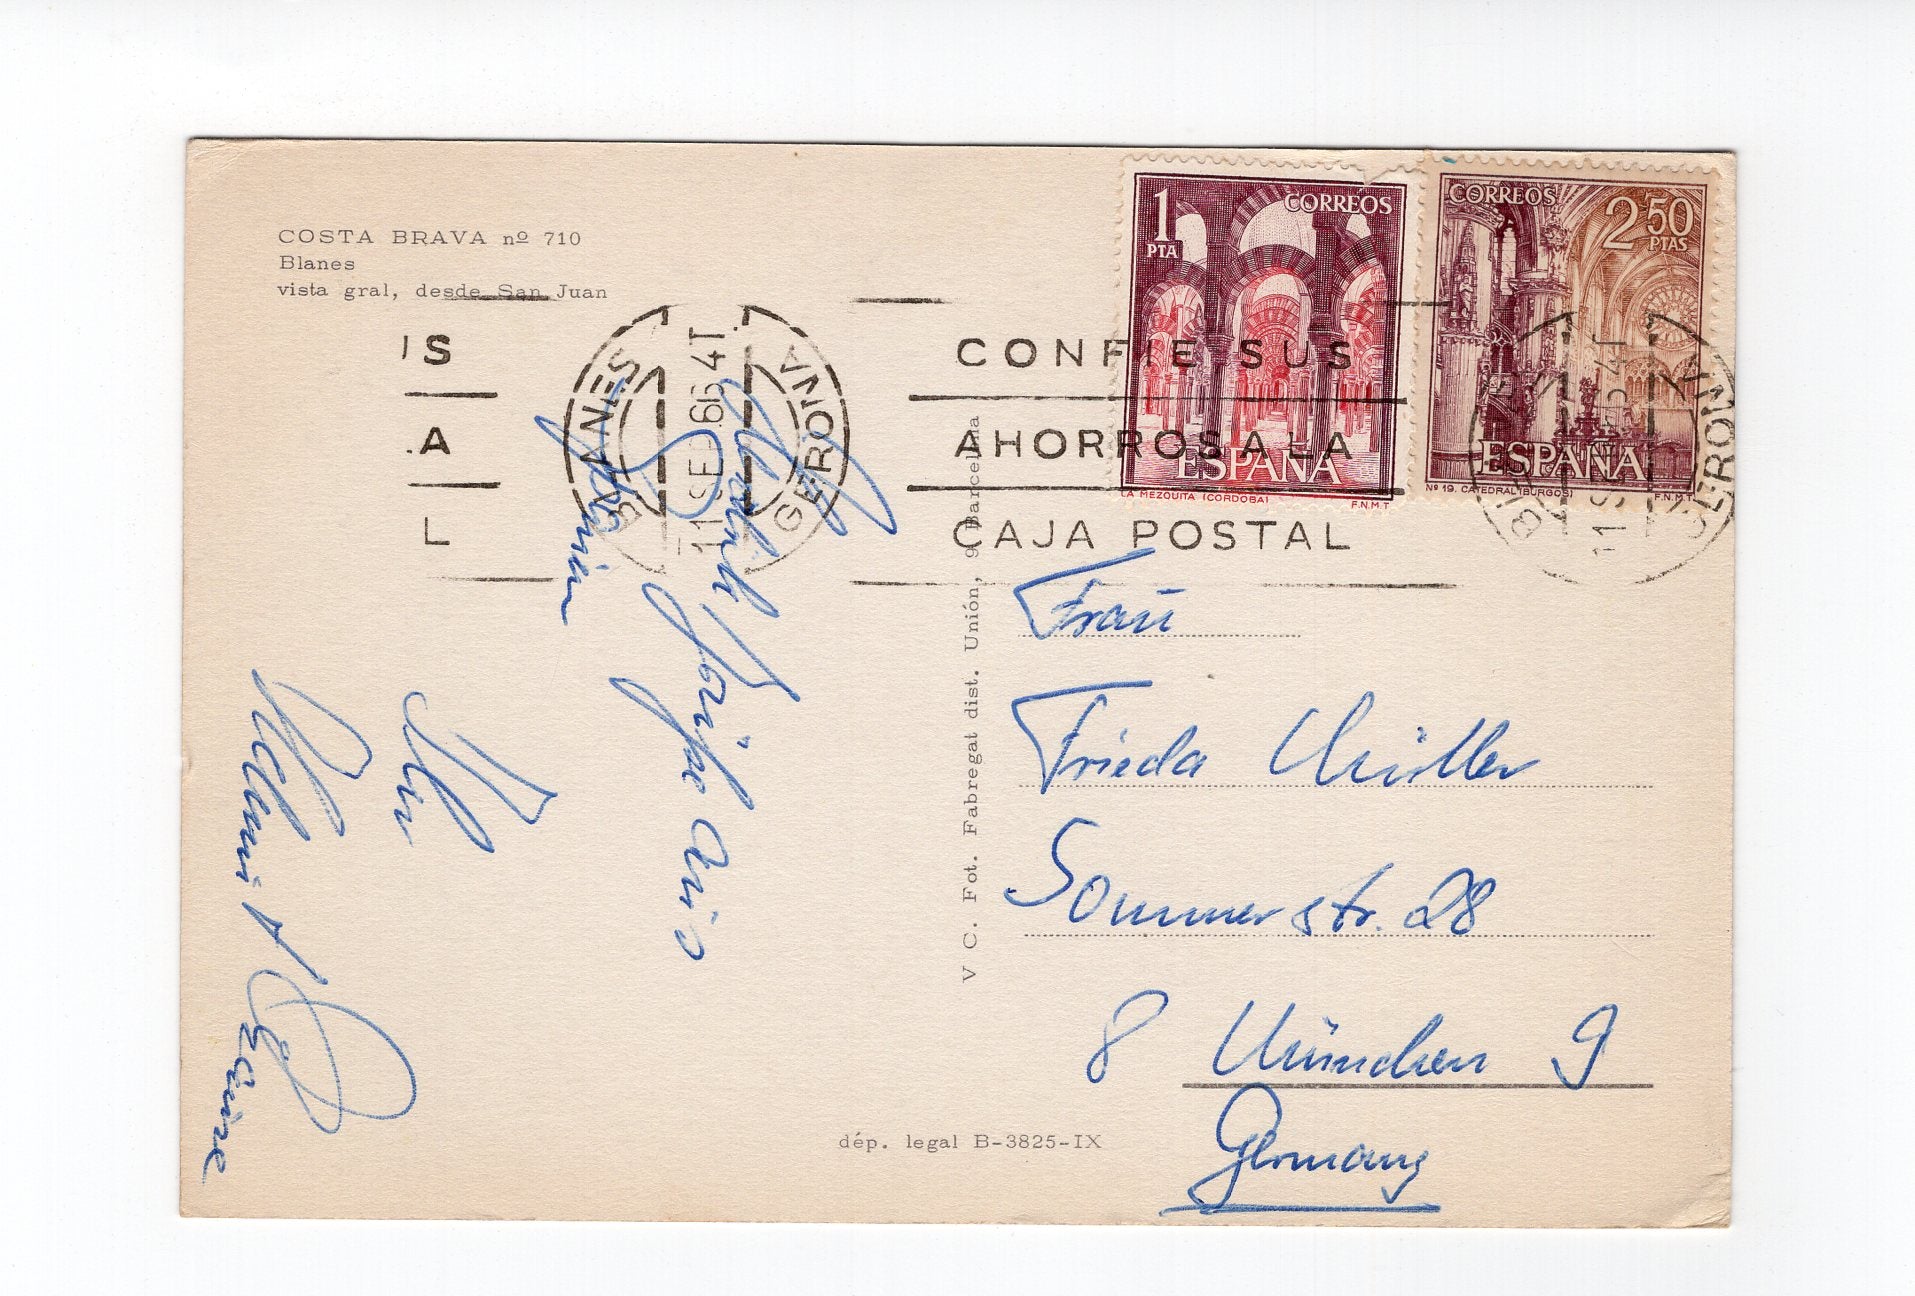 COSTA BRAVA nº 710
Blanes
vista gral, desde San Juan
1 PTA
CORREOS
ESPAÑA
LA MEZQUITA (CORDOBA)
F.N.M.T
CORREOS
2 50 PTAS
ESPAÑA
Nº 19. CATEDRAL (BURGOS)
F.N.M.T
IS
A
L
BLANES
GERONA
11 SE 66 4T
CONFIE SUS
AHORROS A LA
CAJA POSTAL
BLANES
GERONA
11 S 4T
V C. Fot. Fabregat dist. Unión, 9 Barcelona
Grüße aus
Ihr
Frau
Frieda Müller
Sommerstr. 28
8 München 9
Germany
dép. legal B-3825-IX